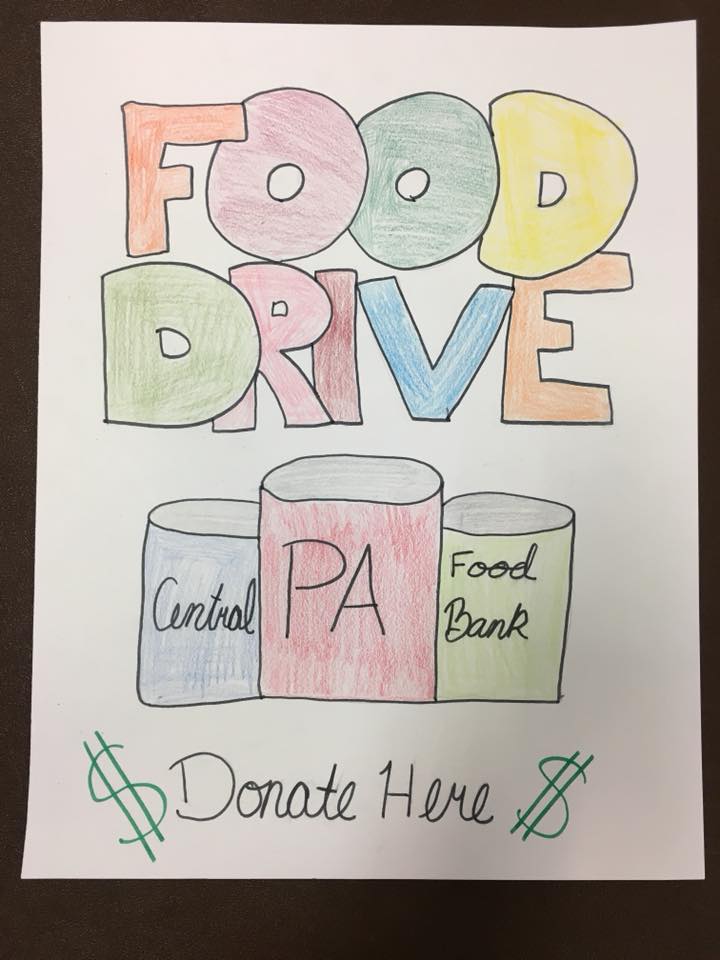 FOOD
DRIVE
Central
PA
Food
Bank
$ Donate Here $